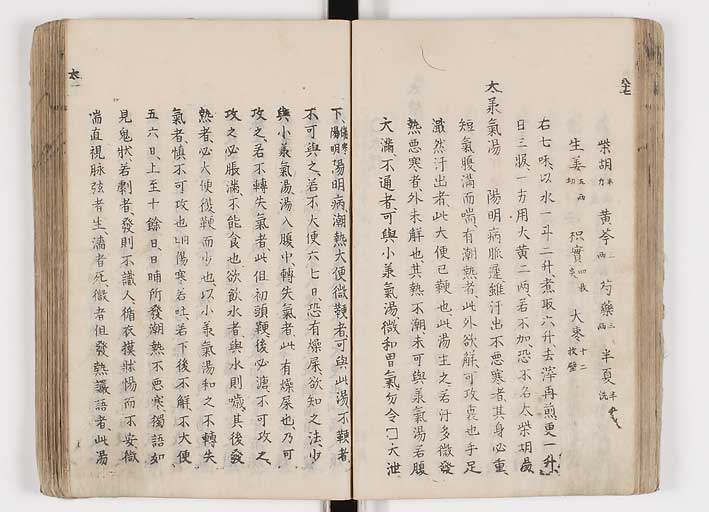 八十七
柴胡半斤 黄芩三両 芍薬三両 半夏半升洗
生姜五両切 枳實四枚炙 大枣十二枚擘
右七味以水一斗二升煮取六升去滓再煎更一升
日三服一方用大黄二両若不加恐不名大柴胡湯
大承氣湯 陽明病脈遲雖汗出不悪寒者其身必重
短氣腹滿而喘有潮熱者此外欲解可攻裏也手足
濈然汗出者此大便已鞕也此湯主之若汗多微發
熱悪寒者外未解也其熱不潮未可與承氣湯若腹
大滿不通者可與小承氣湯微和胃氣勿令大泄
下傷寒陽明陽明病潮熱大便微鞕者可與此湯不鞕者
不可與之若不大便六七日恐有燥屎欲知之法少
與小承氣湯湯入腹中轉失氣者此有燥屎也乃可
攻之若不轉失氣者此但初頭鞕後必溏不可攻之
攻之必脹滿不能食也欲飲水者與水則噦其後發
熱者必大便復鞕而少也以小承氣湯和之不轉失
氣者慎不可攻也明陽寒若吐若下後不解不大便
五六日上至十餘日日晡所發潮熱不悪寒獨語如
見鬼狀若劇者發則不識人循衣摸牀惕而不安微
喘直視脉弦者生濇者死微者但發熱讝語者此湯
太